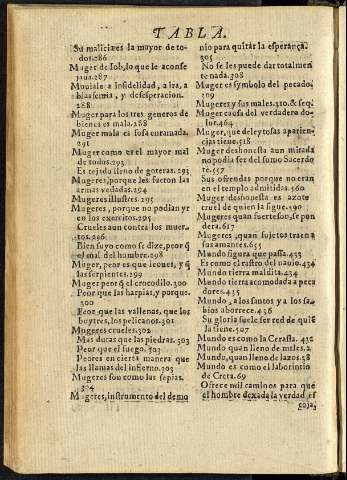 TABLA.
Su malicia es la mayor de to-
dos. 286
Muger de Iob, lo que le aconse
jaua. 287
Mouiale a infidelidad, a ira, a
blasfemia, y desesperacion.
288
Muger para los tres generos de
bienes es mala. 288
Muger mala es fosa enramada.
291
Muger como es el mayor mal
de todos. 293
Es tejido lleno de goteras. 293
Mugeres, porque les fueron las
armas vedadas. 294
Mugeres illustres. 295
Mugeres, porque no podian yr
en los exercitos. 295
Crueles aun contra los muer-
tos. 296
Bien suyo como se dize, peor q̃
el mal del hombre. 298
Muger, peor es que leones, y q̃
las serpientes. 299
Muger peor q̃ el crocodilo. 300
Peor que las harpias, y porque.
300
Peor que las vallenas, que los
buytres, los pelicanos. 301
Mugeres crueles. 302
Mas duras que las piedras. 303
Peor que el fuego. 303
Peores en cierta manera que
las llamas del infierno. 303
Mugeres son como las sepias.
304
Mugeres, instrumento del demo
nio para quitar la esperança.
305
No se les puede dar total men
te nada. 308
Muger es symbolo del pecado.
309
Mugeres y sus males. 310. & seq.
Muger causa del verdadero do-
lor. 464
Muger, que deleytosas aparien-
cias tiene. 518
Muger deshonesta aun mirada
no podia ser del sumo Sacerdo
te. 557
Sus ofrendas porque no eran
en el templo admitidas. 560
Muger deshonesta es azote
cruel de quien la sigue. 590
Mugeres quan fuertes son, se pon
dera. 617
Mugeres, quan sujetos traen a
sus amantes. 655
Mundo figura que passa. 433
Es como el rastro del nauio. 434
Mundo tierra maldita. 434
Mundo tierra acomodada a peca
dores. 435
Mundo, a los santos y a los sa-
bios aborrece. 436
Su gloria suele ser red de quiẽ
la tiene. 507
Mundo es como la Cerasta. 432
Mundo quan lleno de males. 2
Mundo, quan lleno de lazos. 38
Mundo es como el laborintio
de Creta. 69
Ofrece mil caminos para que
el hombre dexada la verdad es